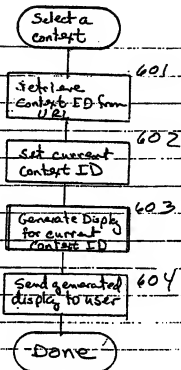 Select a
context
601
Retrieve
Context ID from
URL
602
Set current
Context ID
603
Generate Display
for current
Context ID
604
Send generated
display to user
Done